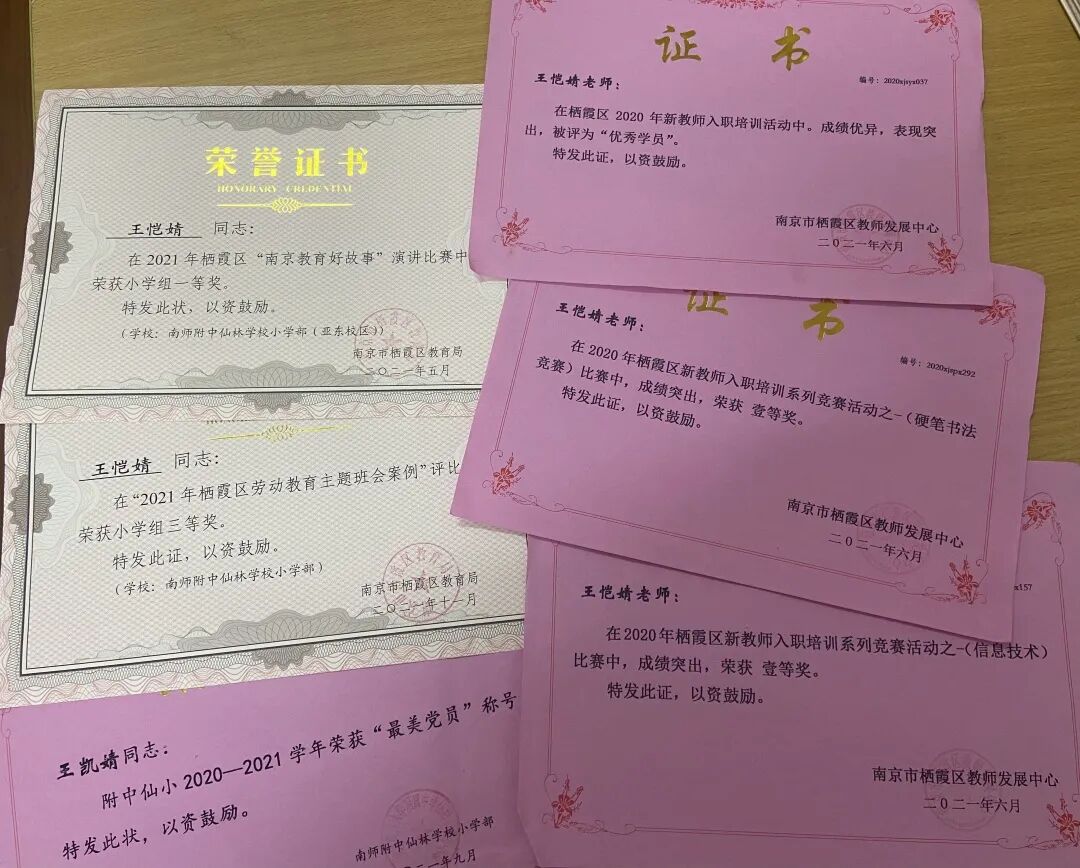 荣誉证书
HONORARY CREDENTIAL
王恺婧 同志：
在2021年栖霞区“南京教育好故事”演讲比赛中
荣获小学组一等奖。
特发此状，以资鼓励。
（学校：南师附中仙林学校小学部（亚东校区））
南京市栖霞区教育局
二〇二一年五月
王恺婧 同志：
在“2021年栖霞区劳动教育主题班会案例”评比
荣获小学组三等奖。
特发此证，以资鼓励。
（学校：南师附中仙林学校小学部）
南京市栖霞区教育局
二〇二一年十一月
王凯婧同志：
附中仙小2020—2021学年荣获“最美党员”称号
特发此状，以资鼓励。
南师附中仙林学校小学部
二一年九月
证 书
编号：2020xjsyx037
王恺婧老师：
在栖霞区 2020 年新教师入职培训活动中。成绩优异，表现突
出，被评为“优秀学员”。
特发此证，以资鼓励。
南京市栖霞区教师发展中心
二〇二一年六月
证 书
王恺婧老师：
编号：2020xjspx292
在2020年栖霞区新教师入职培训系列竞赛活动之一（硬笔书法
竞赛）比赛中，成绩突出，荣获 壹等奖。
特发此证，以资鼓励。
南京市栖霞区教师发展中心
二〇二一年六月
x157
王恺婧老师：
在2020年栖霞区新教师入职培训系列竞赛活动之一（信息技术）
比赛中，成绩突出，荣获 壹等奖。
特发此证，以资鼓励。
南京市栖霞区教师发展中心
二〇二一年六月